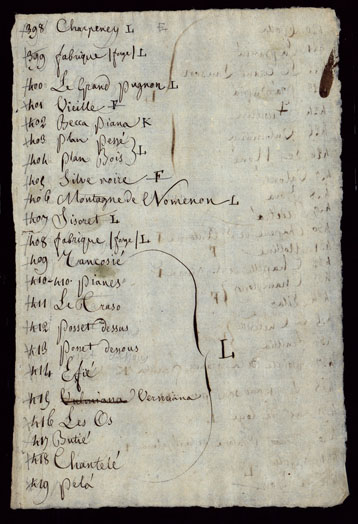 398 Charpeney L
399 fabrique /foge/ L
400 Le Grand Pugnon L
401 Vieille F
402 Becca Piana K
403 Plan Pessé
404 Plan Bois } L
405 Silve noire F
406 Montagne de Nomenon L
407 Sisoret L
408 fabrique /foge/ L
409 Tancosié
410-410 pianes
411 Le Craso
412 Posset dessus
413 Posset dessous
414 Efié L
415 Vernuana
416 Les Os
417 Butié
418 Chantelé
419 Pelá